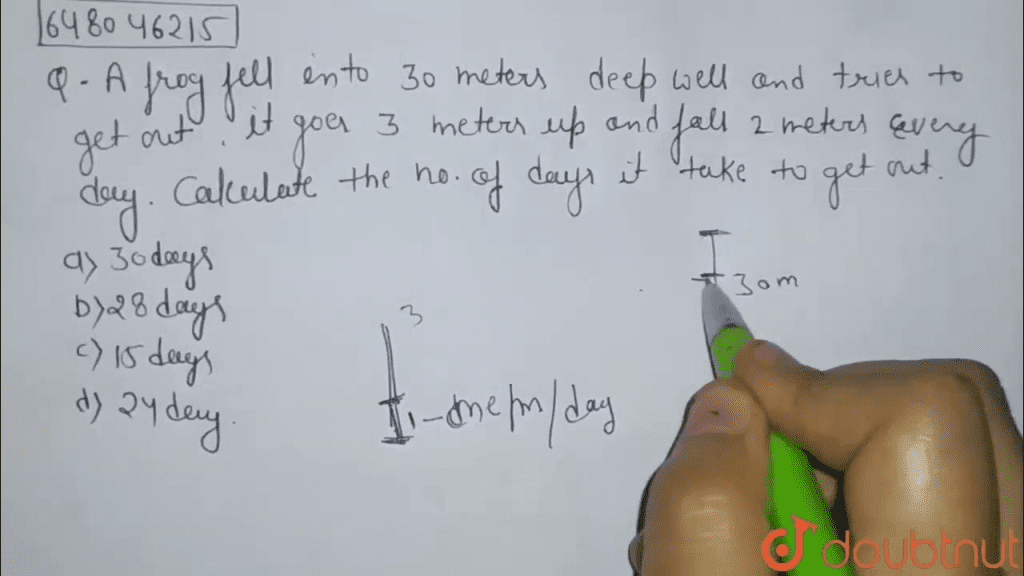 64804 6215
Q - A frog fell into 30 meters deep well and tries to
get out. it goes 3 meters up and fall 2 meters every
day. Calculate the no. of days it take to get out.
a) 30 days
b) 28 days
c) 15 days
d) 24 day.
30m
3
1 - one/m/day
doubtnut